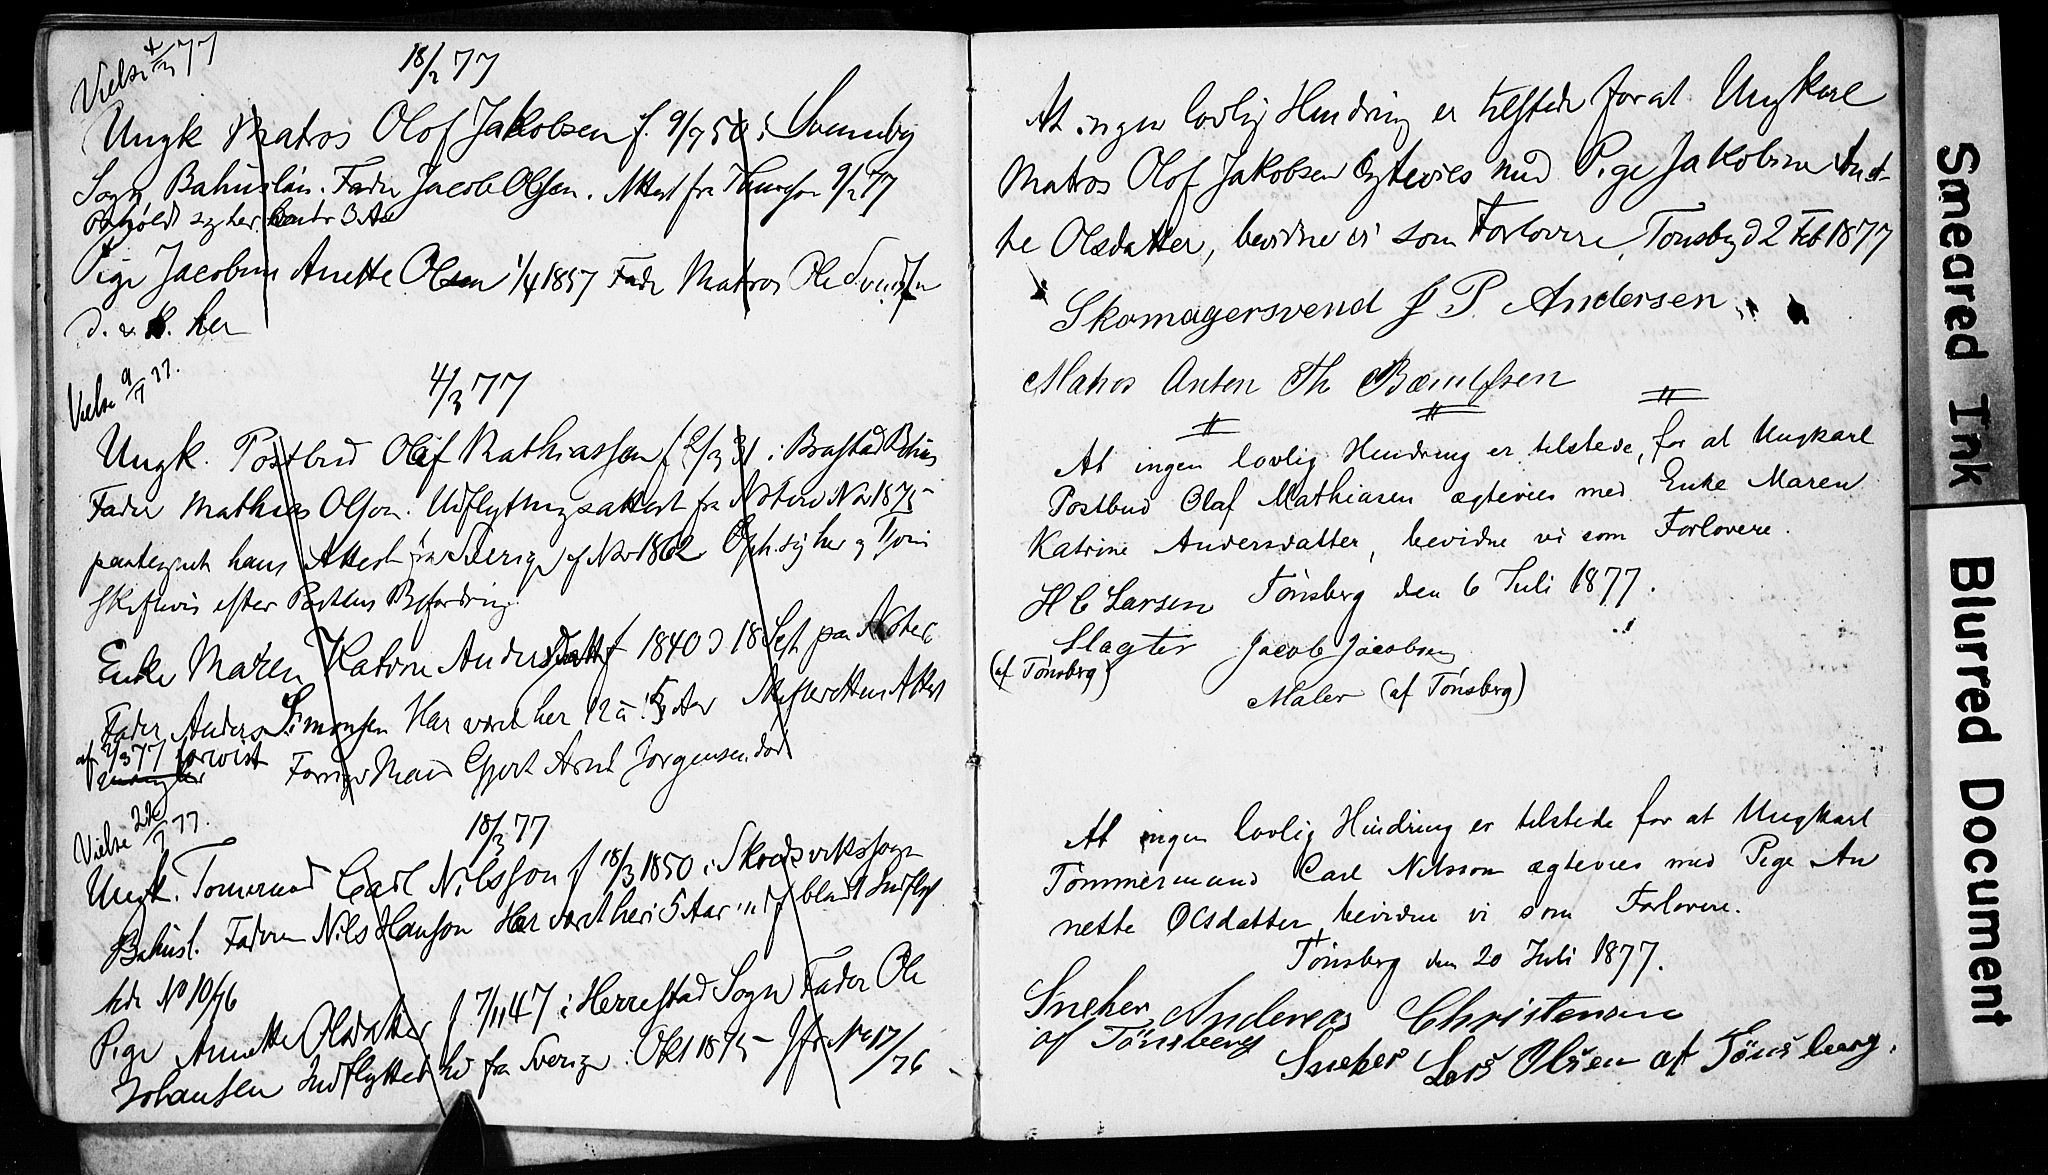 Vielse 4/3 77
18/2 77
Ungk Matros Olof Jakobsen f. 9/7 50 i Svenneby
Sogn Bahuslän. Fader Jacob Olsen. Attest fra 9/2 77
opholdt sig her 3 Aar
Pige Jacobine Anette Olsen 1/4 1857 Fader Matros Ole Svendsen
d. v. k. her
Vielse 9/7 77.
4/3 77
Ungk. Postbud Olaf Mathiassen f 2/3 31 i Brastad Bahus
Fader Mathias Olson. Udflytningsattest fra Nøterø Nov 1875
paategnet hans Attest fra Sverige af Nov 1862 Oph. sig her og
skiftevis efter Postens Befordring.
Enke Maren Katrine Andersdatter f 1840 d 18 Sept paa Nøterø
Fader Anders Simonsen Har været her 12 à 15 Aar Skifterettens Attest
af 2/3 77 forevist Forrige Mand Gjert Arnt Jørgensen død
mangler
Vielse 22/7 77.
18/3 77
Ungk. Tømermand Carl Nilsson f 18/3 1850 i Skredsvikssogn
Bahusl. Faderen Nils Hanson Har været her i 5 Aar blandt Indflyt
tede No 10/76
Pige Annette Olsdatter f 7/11 47 i Herrestad Sogn Fader Ole
Johansen Indflyttet hid fra Sverige Okt 1875 Jfr No 17/76
At ingen lovlig Hindring er tilstede for at Ungkarl
Matros Olof Jakobsen Ægtevies med Pige Jakobine Anet-
te Olsdatter, bevidne vi som Forlovere, Tønsberg d 2 Feb 1877
Skomagersvend J P. Andersen
Matros Anton Th Berntsen
At ingen lovlig Hindring er tilstede, for at Ungkarl
Postbud Olaf Mathiasen ægtevies med Enke Maren
Katrine Andersdatter, bevidne vi som Forlovere.
H C Larsen Tönsberg den 6 Juli 1877.
Slagter Jacob Jacobsen
(af Tönsberg) Maler (af Tönsberg)
At ingen lovlig Hindring er tilstede for at Ungkarl
Tömmermand Carl Nilsson ægtevies med Pige An
nette Olsdatter bevidne vi som Forlovere.
Tönsberg den 20 Juli 1877.
Sneker Andereas Christensen
af Tönsberg
Sneker Lars Olsen af Tönsberg.
Smeared Ink
Blurred Document